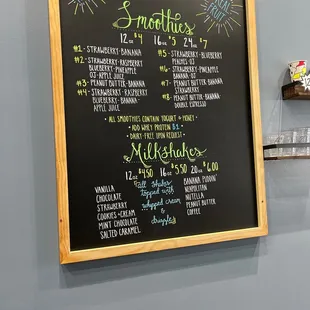 REAL FRUIT
Smoothies
12oz $4 16oz $5 24oz $7
#1 - STRAWBERRY-BANANA
#2 - STRAWBERRY-RASPBERRY
BLUEBERRY-PINEAPPLE
OJ-APPLE JUICE
#3 - PEANUT BUTTER-BANANA
#4 - STRAWBERRY-RASPBERRY
BLUEBERRY-BANANA
APPLE JUICE
#5 - STRAWBERRY-BLUEBERRY
PEACHES-OJ
#6 - STRAWBERRY-PINEAPPLE
BANANA-OJ
#7 - PEANUT BUTTER-BANANA
STRAWBERRY
#8 - PEANUT BUTTER-BANANA
DOUBLE ESPRESSO
• ALL SMOOTHIES CONTAIN YOGURT + HONEY
• ADD WHEY PROTEIN $1 •
• DAIRY-FREE UPON REQUEST •
Milkshakes
12oz $4.50 16oz $5.50 20oz $6.00
VANILLA
CHOCOLATE
STRAWBERRY
COOKIES + CREAM
MINT CHOCOLATE
SALTED CARAMEL
All shakes
topped with
whipped cream
&
drizzles
BANANA PUDDIN'
NEAPOLITAN
NUTELLA
PEANUT BUTTER
COFFEE